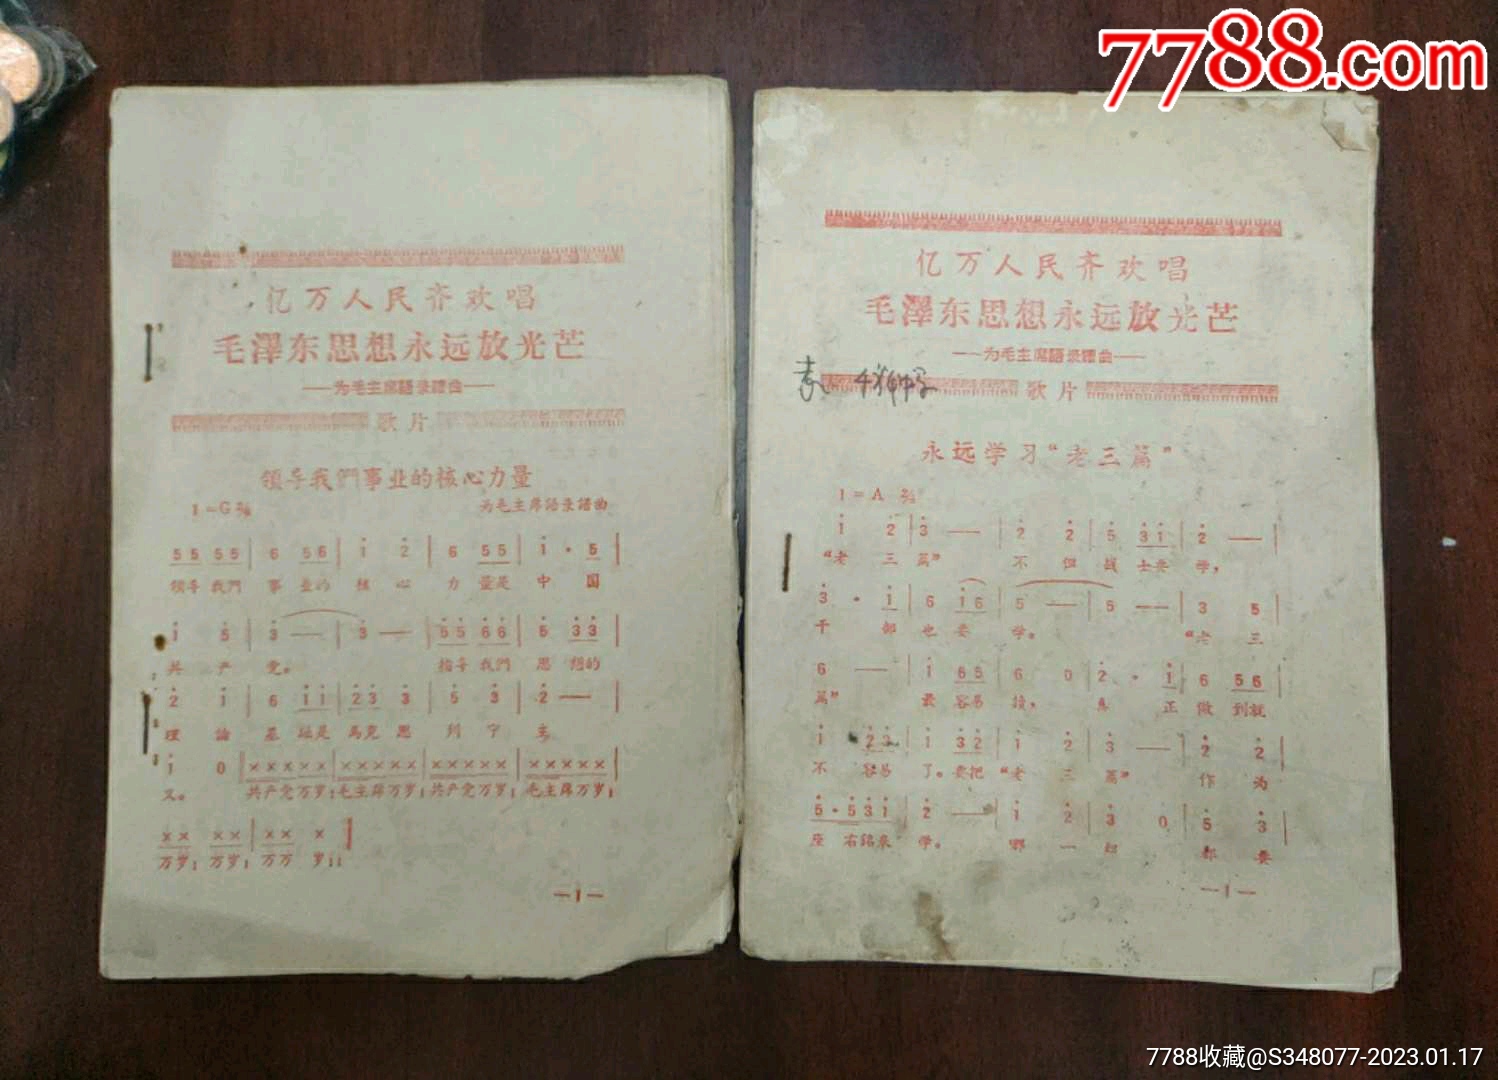 7788.com
亿万人民齐欢唱
毛澤东思想永远放光芒
——为毛主席語录譜曲——
歌片
领导我們事业的核心力量
1=G 2/4
为毛主席語录譜曲
5 5 5 5 | 6 5 6 | i 2 | 6 5 5 | i · 5 |
领导 我們 事 业的 核 心 力 量是 中 国
i 5 | 3 — | 3 — | 5 5 6 6 | 5 3 3 |
共 产 党。 指导 我們 思 想的
2 i | 6 i i | 2 3 3 | 5 3 | 2 — |
理 論 基 础是 馬克 思 列 宁 主
i 0 | × × × × × | × × × × × | × × × × × | × × × × × |
义。 共产党万岁! 毛主席万岁! 共产党万岁! 毛主席万岁!
× × × × | × × × |
万岁! 万岁! 万万 岁!!
—1—
亿万人民齐欢唱
毛澤东思想永远放光芒
——为毛主席語录譜曲——
歌片
永远学习“老三篇”
1=A 2/4
i 2 | 3 — | 2 2 | 5 3 i | 2 — |
“老 三 篇” 不 但 战 士要 学,
3 · i | 6 i 6 | 5 — | 5 — | 3 5
干 部 也 要 学。 “老 三
6 — | i 6 5 | 6 0 | 2 · i | 6 5 6
篇” 最 容易 读, 真 正 做 到就
i 2 3 | i 3 2 | i 2 | 3 — | 2 2
不 容易 了。要把 “老 三 篇” 作 为
5 · 5 3 i | 2 — | i 2 | 3 0 | 5 3 |
座 右铭来 学。 哪 一 级 都 要
—1—
7788收藏@S348077-2023.01.17